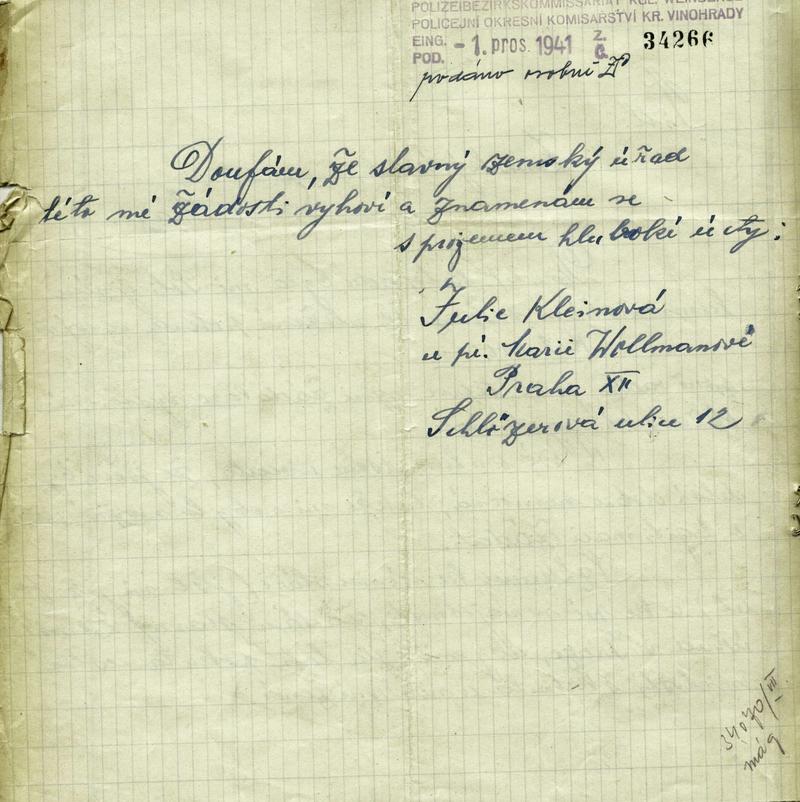 POLIZEIBEZIRKSKOMMISSARIAT KGL. WEINBERGE
POLICEJNÍ OKRESNÍ KOMISARSTVÍ KR. VINOHRADY
EING. - 1. pros. 1941 Z. 34266
POD. Č.
podáno osobně
Doufám, že slavný zemský úřad
této mé žádosti vyhoví a znamenám se
s projemem hluboké úcty:
Julie Kleinová
u pí. Marie Wollmanové
Praha XII
Schlözerová ulice 12
34070/VIII